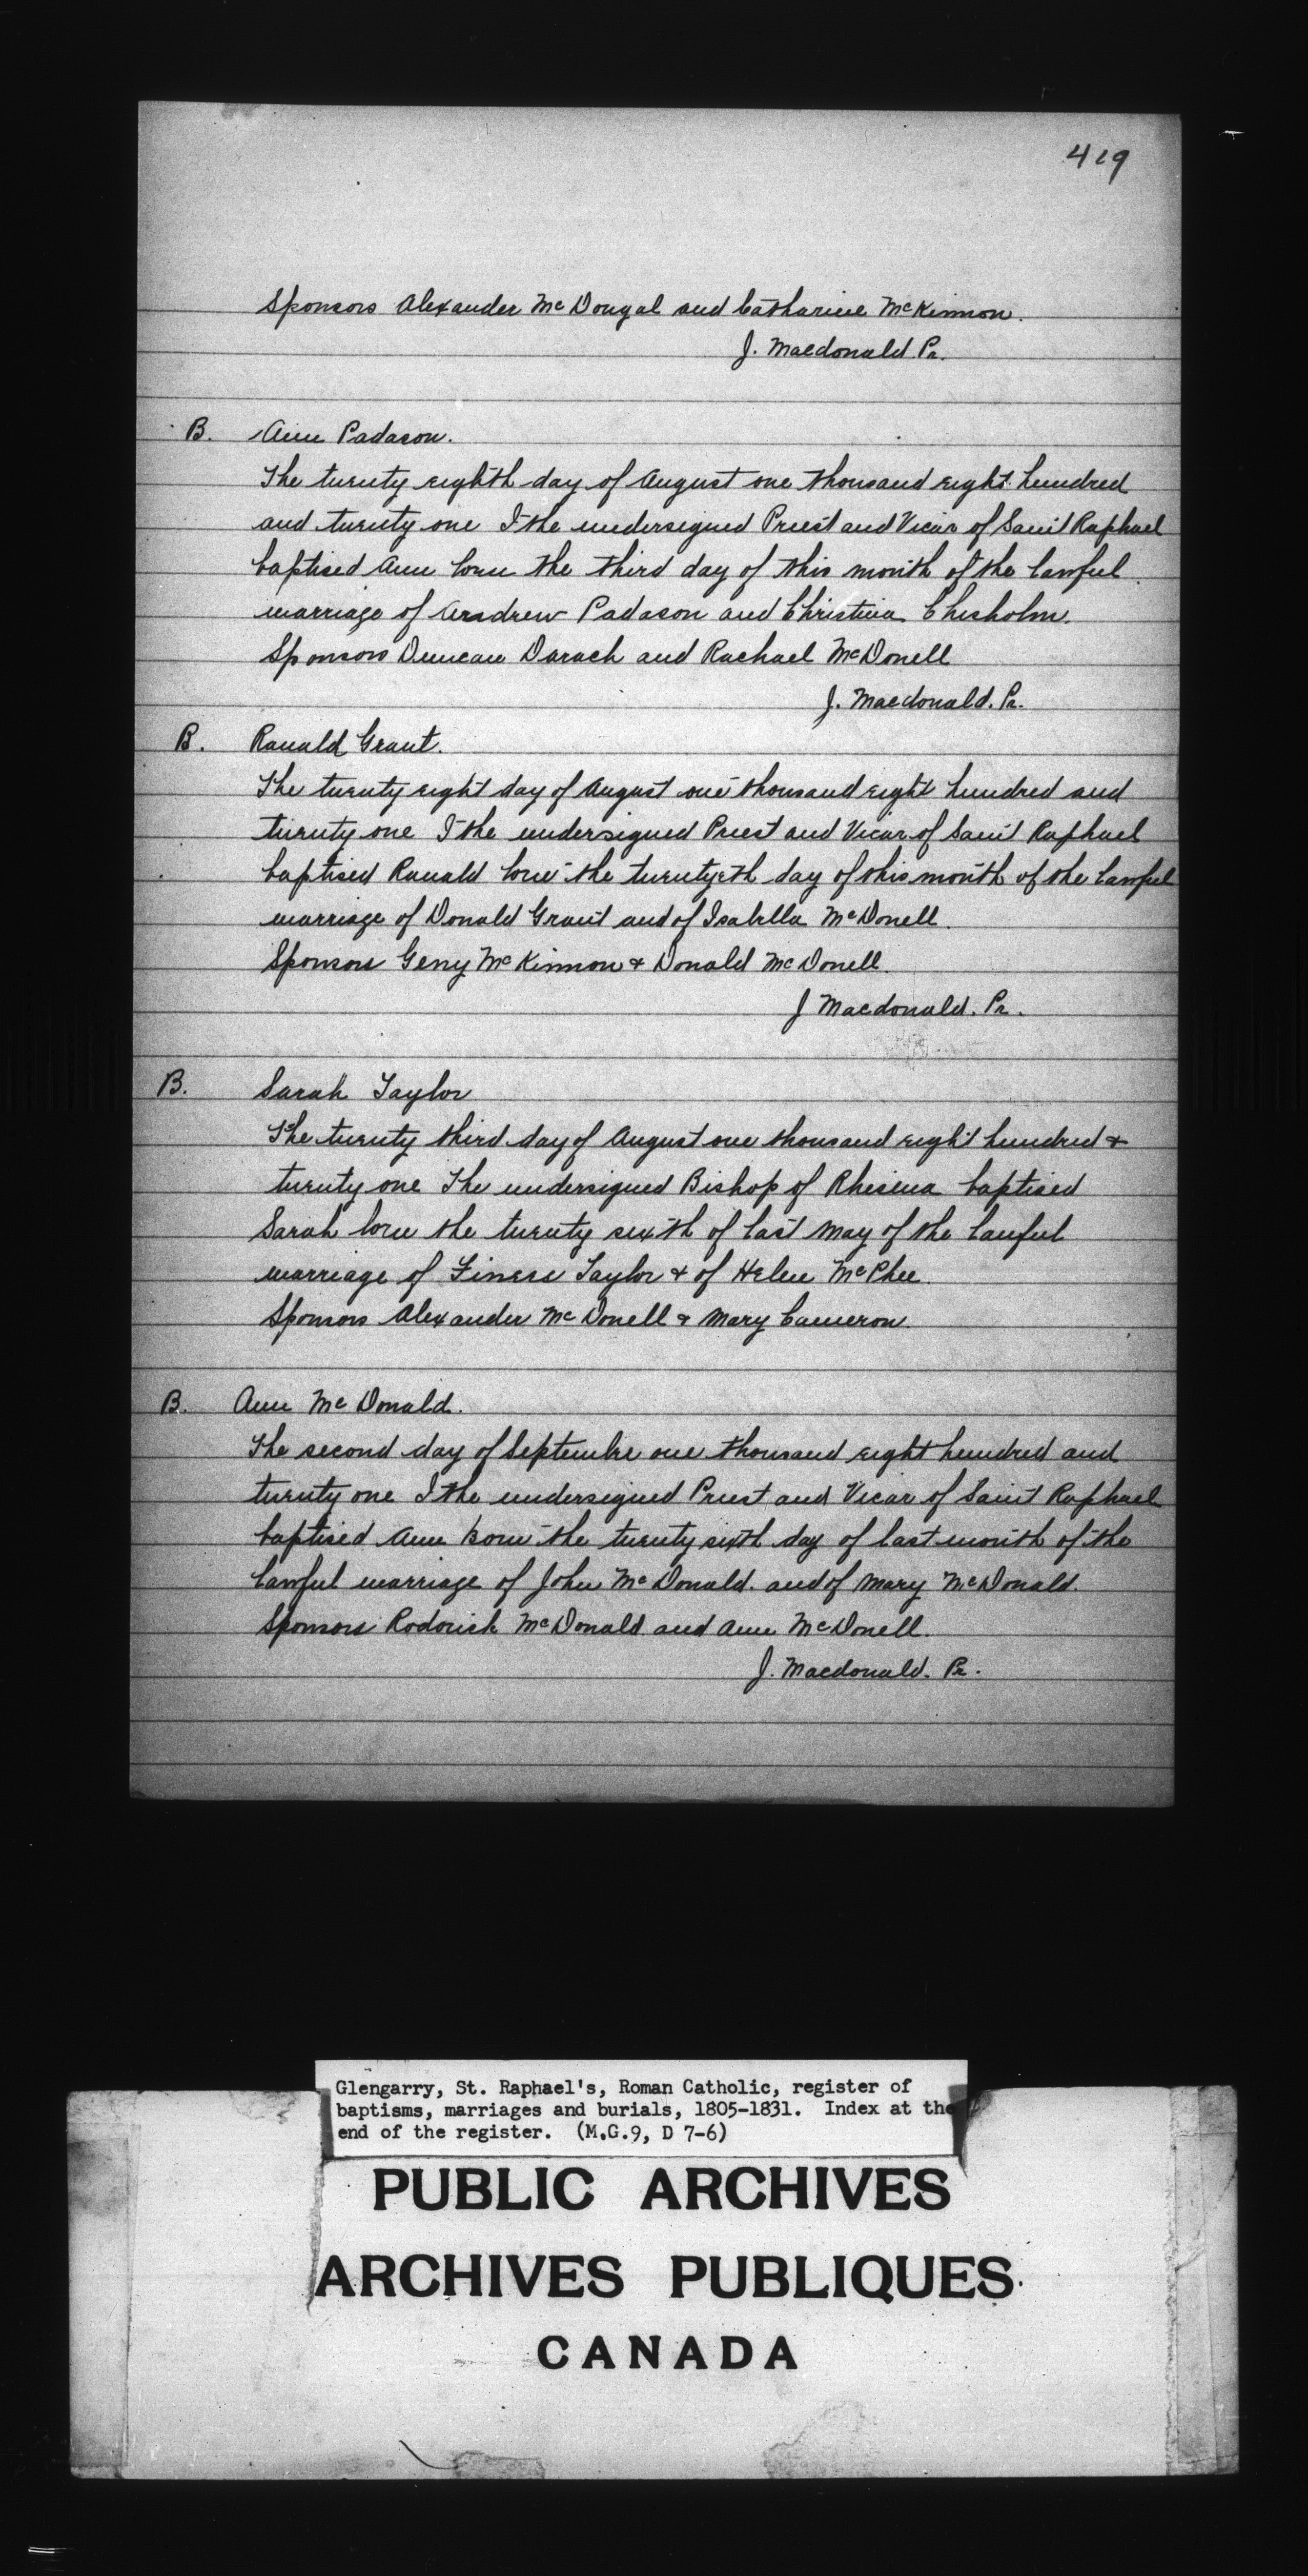 419
Sponsors Alexander McDougal and Catharine McKinnon.
J. Macdonald Pr.
B. Ann Padason.
The twenty eighth day of August one thousand eight hundred
and twenty one I the undersigned Priest and Vicar of Saint Raphael
baptised Ann born the third day of this month of the lawful
marriage of Andrew Padason and Christina Chisholm.
Sponsors Duncan Darach and Rachael McDonell
J. Macdonald. Pr.
B. Ranald Grant.
The twenty eight day of August one thousand eight hundred and
twenty one I the undersigned Priest and Vicar of Saint Raphael
baptised Ranald born the twentyeth day of this month of the lawful
marriage of Donald Grant and of Isabella McDonell.
Sponsors Geny McKinnon & Donald McDonell.
J Macdonald. Pr.
B. Sarah Taylor
The twenty third day of August one thousand eight hundred &
twenty one The undersigned Bishop of Rhesina baptised
Sarah born the twenty sixth of last May of the lawful
marriage of Finess Taylor & of Helen McPhee.
Sponsors Alexander McDonell & Mary Cameron.
B. Ann McDonald.
The second day of Septembre one thousand eight hundred and
twenty one I the undersigned Priest and Vicar of Saint Raphael
baptised Ann born the twenty sixth day of last month of the
lawful marriage of John McDonald. and of Mary McDonald.
Sponsors Roderick McDonald and Ann McDonell.
J. Macdonald. Pr.
Glengarry, St. Raphael's, Roman Catholic, register of
baptisms, marriages and burials, 1805-1831. Index at the
end of the register. (M.G.9, D 7-6)
PUBLIC ARCHIVES
ARCHIVES PUBLIQUES
CANADA